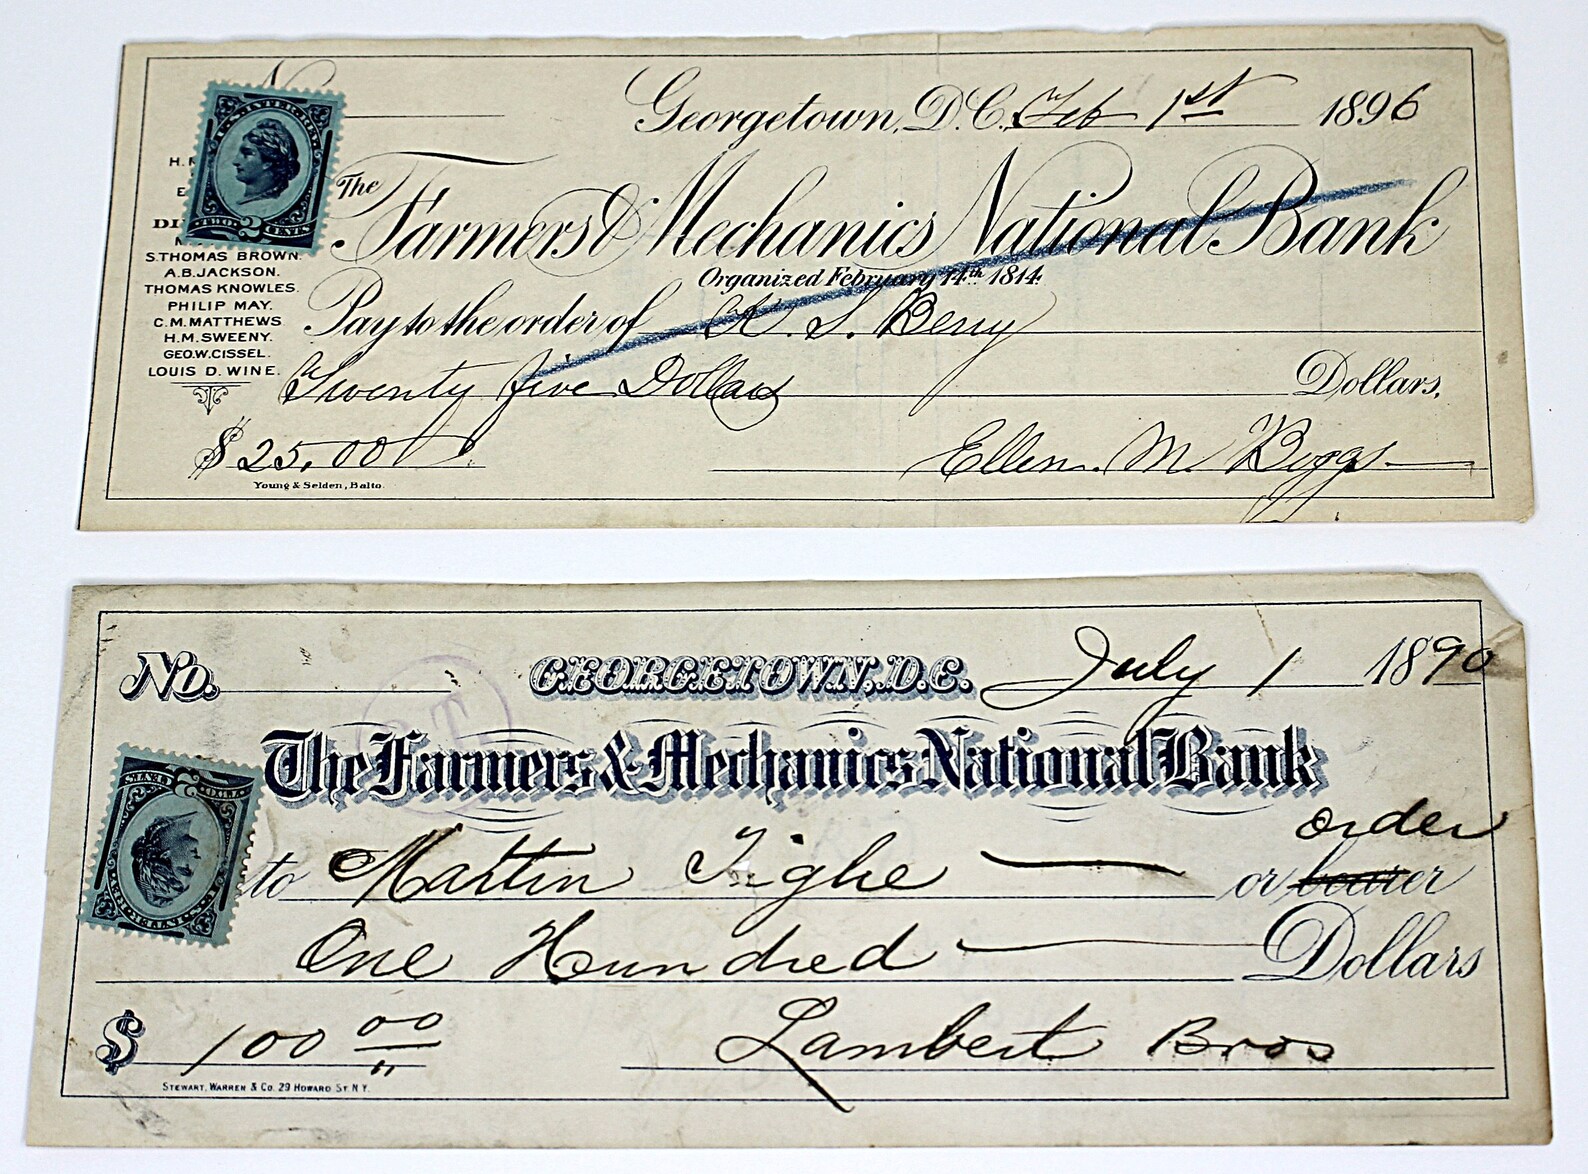 Georgetown, D.C. Feb 1st 1896
The Farmers & Mechanics National Bank
Organized February 14th 1814.
Pay to the order of R. S. Berry
Twenty five Dollars Dollars.
$ 25.00
Ellen M. Boggs
U.S. INTER. REV.
TWO 2 CENTS
H.
E
DI
S. THOMAS BROWN.
A.B. JACKSON.
THOMAS KNOWLES.
PHILIP MAY.
C.M. MATTHEWS
H.M. SWEENY.
GEO.W. CISSEL.
LOUIS D. WINE.
Young & Selden, Balto.
No. GEORGETOWN, D.C. July 1 1890
The Farmers & Mechanics National Bank
order
to Martin Tighe or bearer
One Hundred Dollars
$ 100 00
Lambert Bros
STEWART, WARREN & CO. 29 HOWARD ST. N.Y.
TWO 2 CENTS